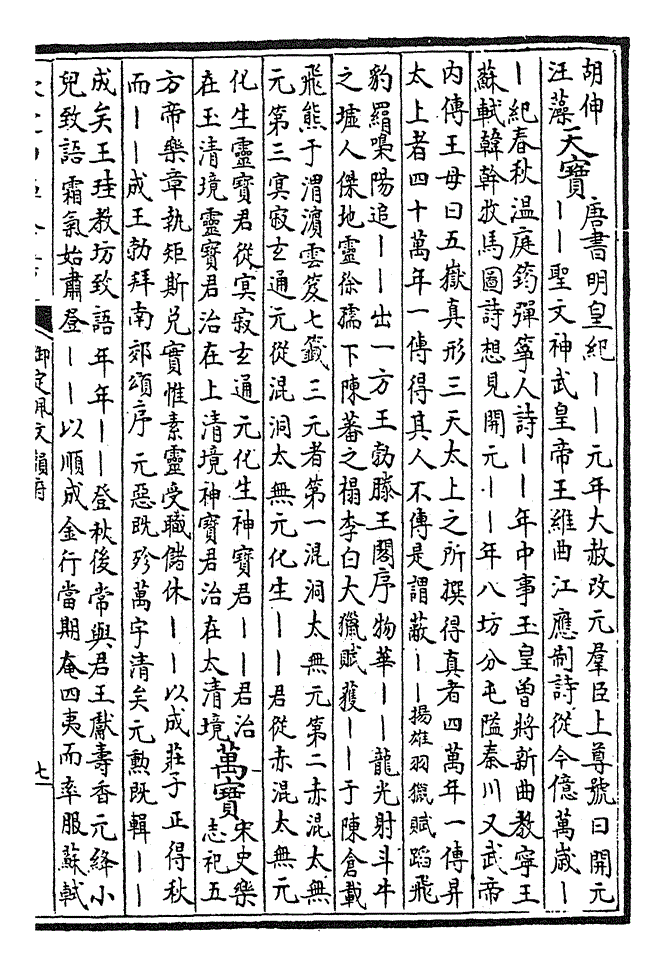 胡伸
汪藻
天寶
唐書明皇紀——元年大赦改元羣臣上尊號曰開元
——聖文神武皇帝王維曲江應制詩從今億萬歲—
—紀春秋溫庭筠彈箏人詩——年中事玉皇曾將新曲教寧王
蘇軾韓幹牧馬圖詩想見開元——年八坊分屯隘秦川又武帝
內傳王母曰五嶽真形三天太上之所撰得真者四萬年一傳昇
太上者四十萬年一傳得其人不傳是謂蔽——揚雄羽獵賦蹈飛
豹羂嘄陽追——出一方王勃滕王閣序物華——龍光射斗牛
之墟人傑地靈徐孺下陳蕃之榻李白大獵賦獲——于陳倉載
飛熊于渭濱雲笈七籤三元者第一混洞太無元第二赤混太無
元第三冥寂玄通元從混洞太無元化生——君從赤混太無元
化生靈寶君從冥寂玄通元化生神寶君——君治
在玉清境靈寶君治在上清境神寶君治在太清境
萬寶
宋史樂
志祀五
方帝樂章執矩斯兌實惟素靈受職儲休——以成莊子正得秋
而——成王勃拜南郊頌序元惡既殄萬宇清矣元勲既輯——
成矣王珪教坊致語年年——登秋後常與君王獻壽香元絳小
兒致語霜氣始肅登——以順成金行當期奄四夷而率服蘇軾
御定佩文韻府
七